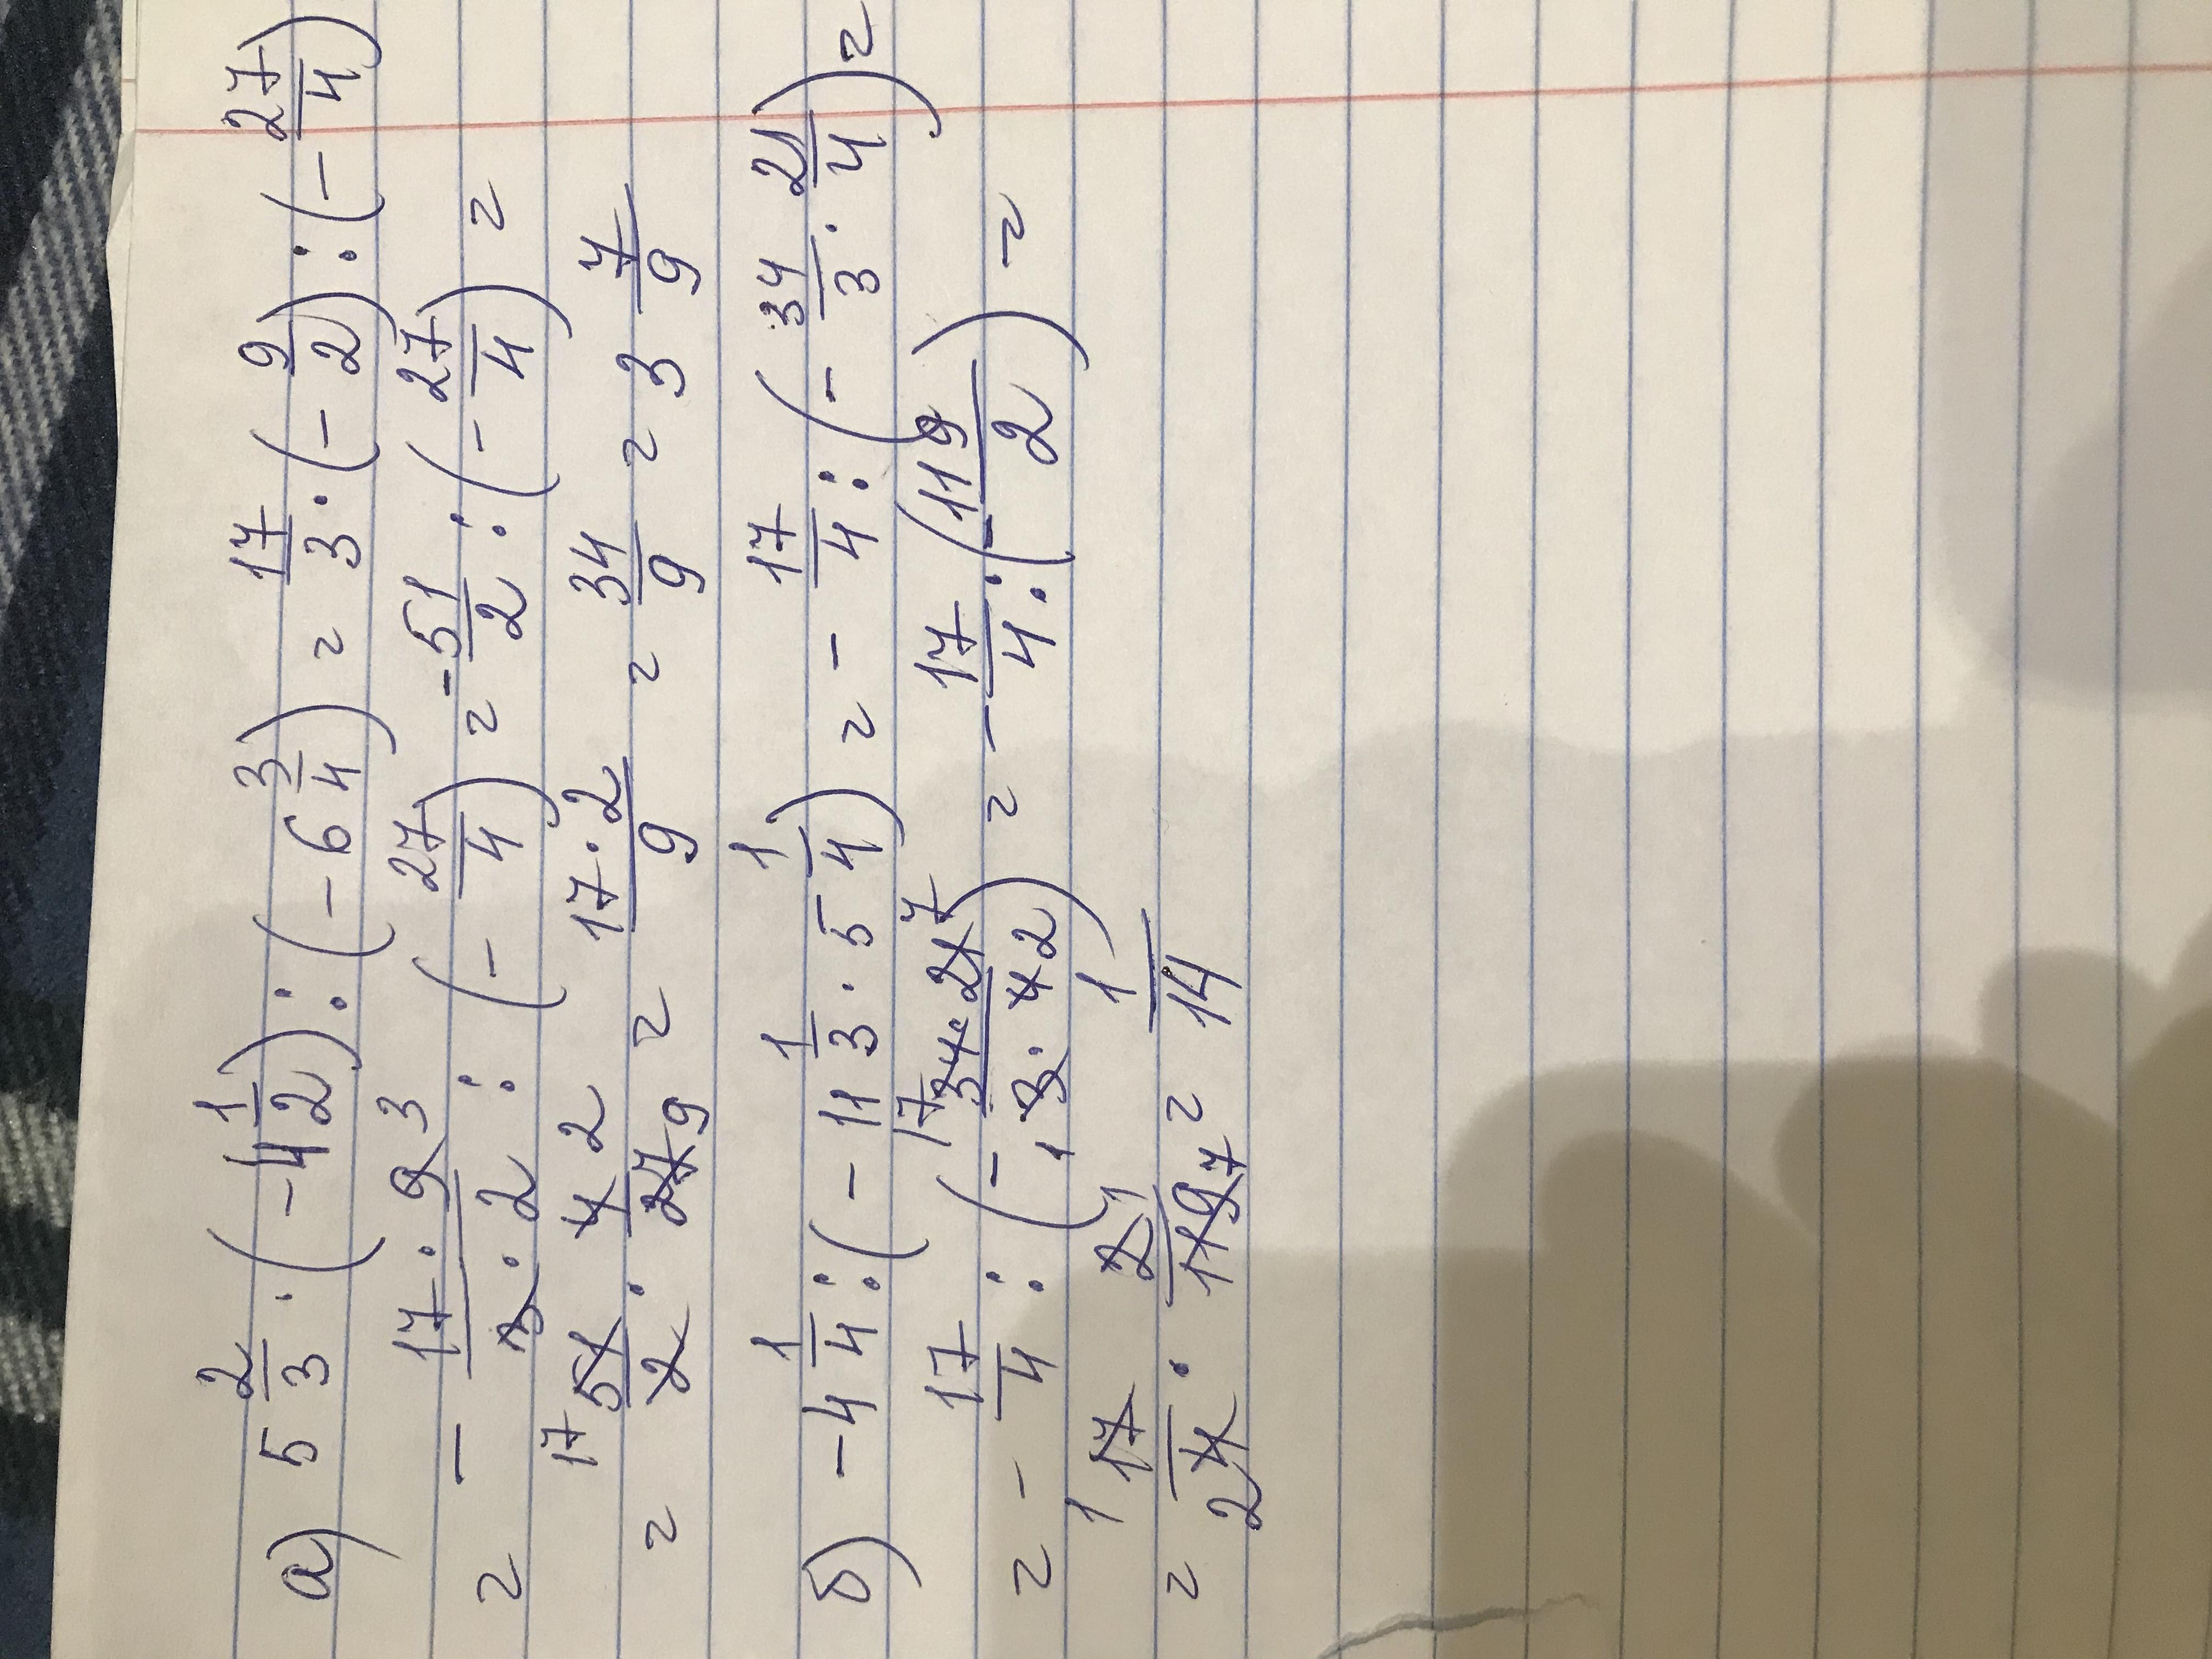 а) 5 2/3 · (-4 1/2) : (-6 3/4) = 17/3 · (-9/2) : (-27/4)
= - 17·9 3/3·2 : (-27/4) = -51/2 : (-27/4) =
= 17 51/2 · 4 2/27 9 = 17·2/9 = 34/9 = 3 7/9
б) -4 1/4 : (-11 1/3 · 5 1/4) = - 17/4 : (-34/3 · 21/4) =
= - 17/4 : (- 17 34·21 7/1 3·4 2) = - 17/4 : (-119/2) =
= 1 17/2 4 · 2 1/119 7 = 1/14